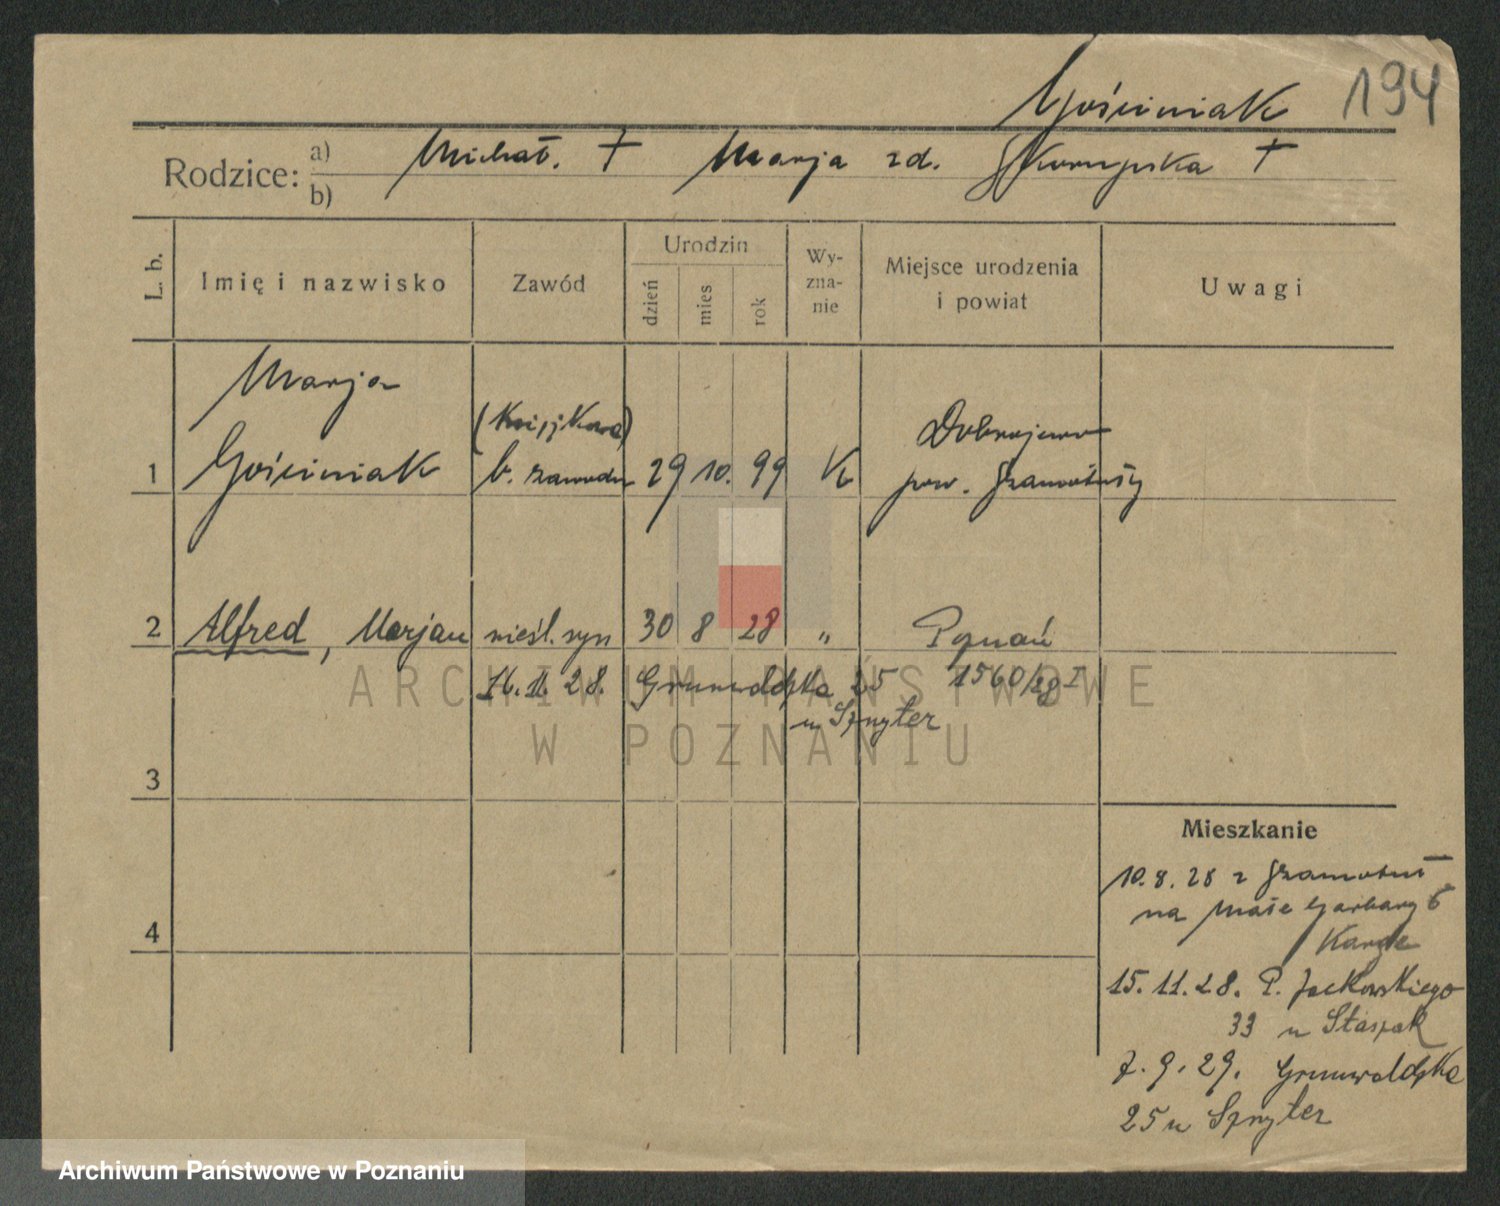 Gościniak 194
Rodzice: a) b) Michał. + Marja zd. Skorupska +
L. b. Imię i nazwisko Zawód Urodzin dzień mies rok Wy-zna-nie Miejsce urodzenia i powiat Uwagi
Marja
Gościniak
1 b. zawodu 29 10. 99 K Dobrojewo
pow. Szamotuły
2 Alfred, Marjan nieśl. syn 30 8 28 " Poznań
16. 11. 28. Grunwaldzka 25 1560/28 I
u Sznyter
3
4
Mieszkanie
10. 8. 28 z Szamotuł
na Małe Garbary 6
15. 11. 28. P. Jackowskiego
33 u Staszak
7. 9. 29. Grunwaldzka
25 u Sznyter
ARCHIWUM PAŃSTWOWE
W POZNANIU
Archiwum Państwowe w Poznaniu